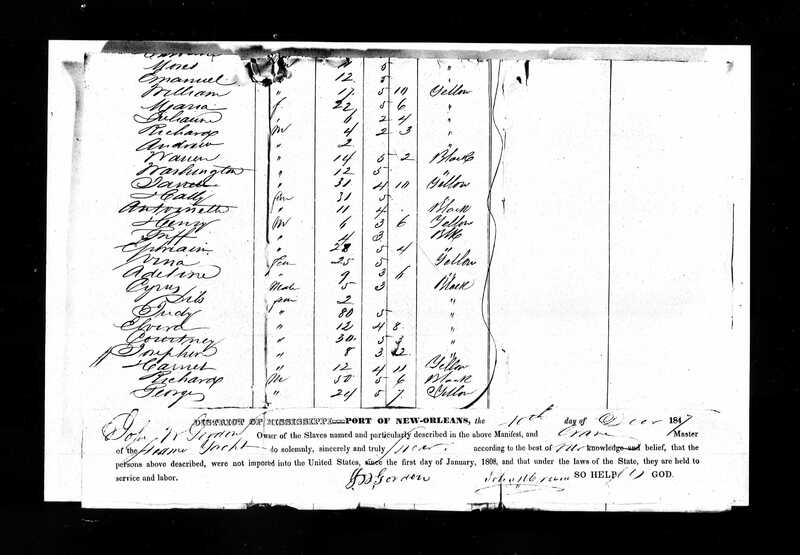 Moses " 11 5 "
Emanuel " 12 5 "
William " 17 5 10 Yellow
Maria f 22 5 6 "
Juliann " 6 2 4 "
Richard M 4 2 3 "
Andrew " 2 "
Warren " 14 5 2 Black
Washington " 12 5 "
" 31 4 10 Yellow
fem 31 5 "
Antoinette " 11 4 Black
Henry M 6 3 6 Yellow
" 4 3 Blk
Ephriam " 28 5 4 "
fem 25 5 Yellow
Adeline " 9 3 6 "
Cyrus Male 5 3 Black
fem 2 "
Judy " 80 5 "
" 12 4 8 "
Courtney " 30 5 3 "
" 8 3 "
Harriet " 12 4 11 Yellow
Richard M 50 5 6 Black
George " 24 5 7 Yellow
DISTRICT OF MISSISSIPPI—PORT OF NEW-ORLEANS, the 10th day of Decr 1847
Gordon Owner of the Slaves named and particularly described in the above Manifest, and Crane Master
of the Steamer Yacht do solemnly, sincerely and truly swear according to the best of our knowledge and belief, that the
persons above described, were not imported into the United States, since the first day of January, 1808, and that under the laws of the State, they are held to
service and labor. Gordon SO HELP GOD.